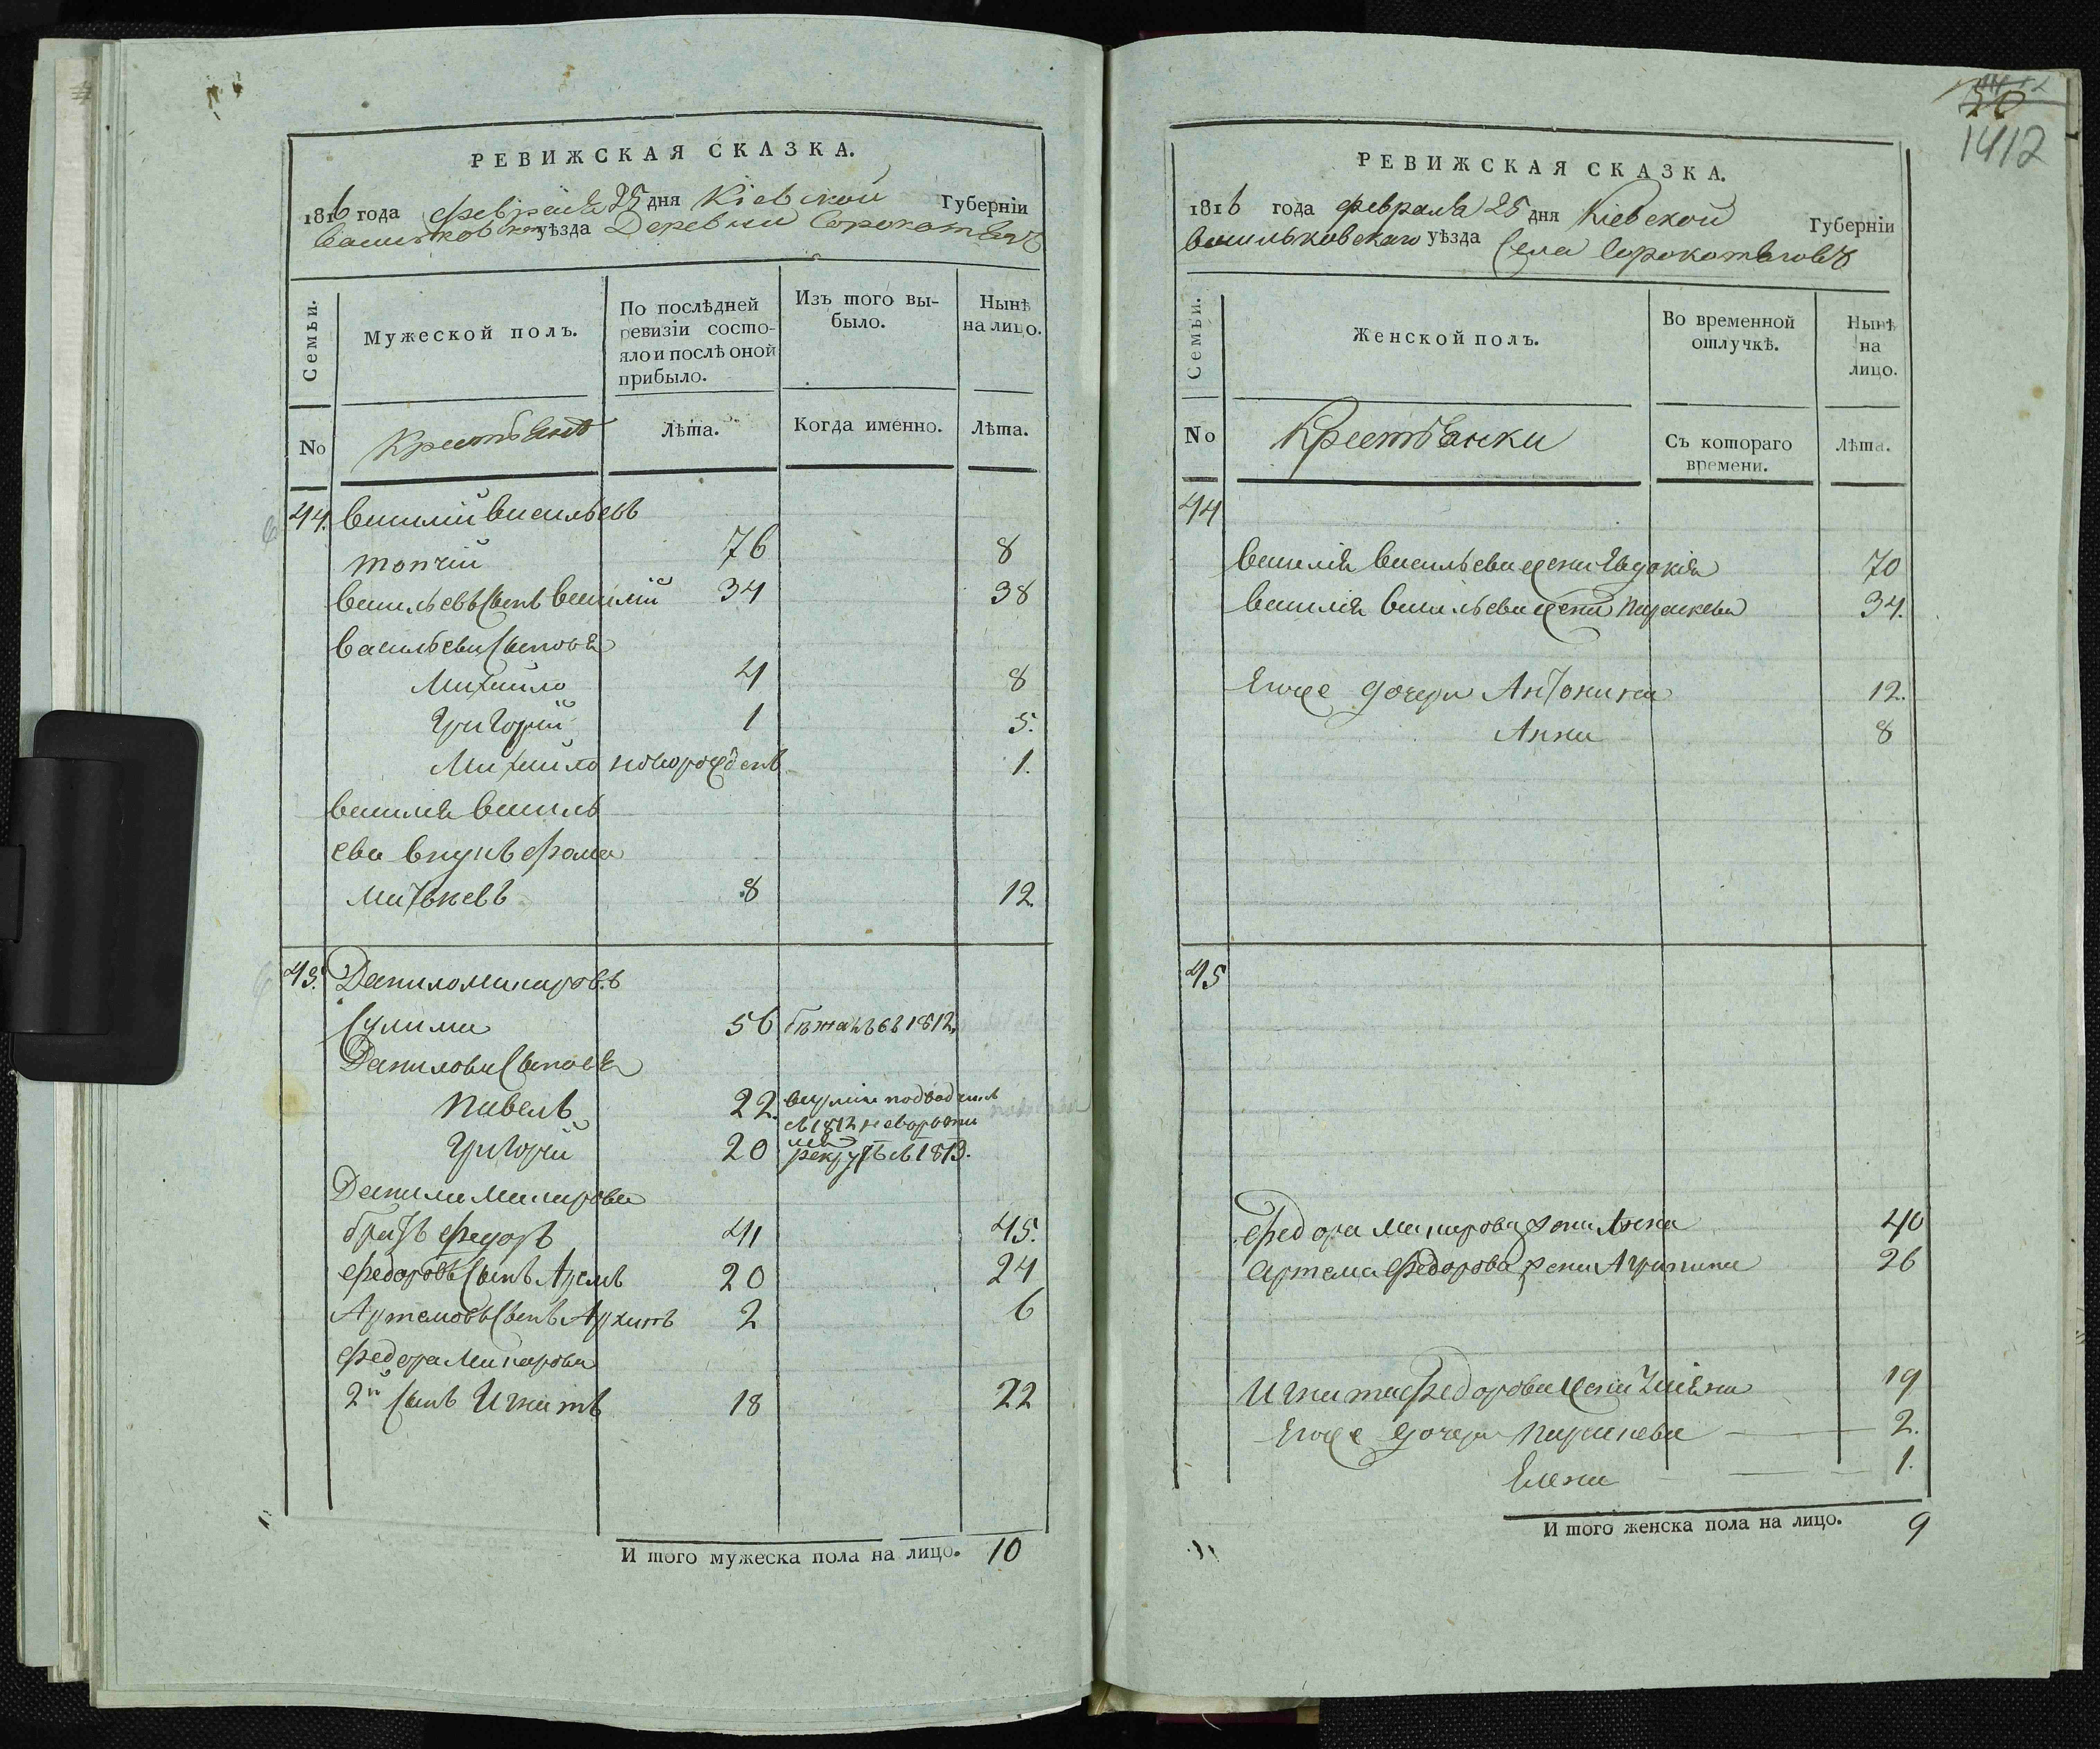 РЕВИЖСКАЯ СКАЗКА.
1816 года февраля 25 дня Кіевской Губерніи
Васильковскаго уѣзда Деревни Сорокотягъ
Семьи.
Мужеской полъ.
По послѣдней ревизіи состояло и послѣ оной прибыло.
Изъ того выбыло.
Нынѣ на лицо.
No
Крестьянъ
Лѣта.
Когда именно.
Лѣта.
44. Василій Васильевъ
Топчій 76 8
Васильевъ сынъ Василій 34 38
Васильевы сыновя
Михайло 4 8
Григорій 1 5.
Михайло новорожденъ 1.
Василія Василь
ева внукъ Фома
8 12.
45. Данило Макаровъ
Сулима 56 бѣжалъ въ 1812.
Даниловы сыновя
Павелъ 22.
Григорій 20 рекрутъ въ 1813.
Данила Макарова
братъ Федоръ 41 45.
Федоровъ сынъ Артемъ 20 24
Артемовъ сынъ Архипъ 2 6
Федора Макарова
2й сынъ Игнатъ 18 22
И того мужеска пола на лицо. 10
1412
РЕВИЖСКАЯ СКАЗКА.
1816 года февраля 25 дня Кіевской Губерніи
Васильковскаго уѣзда Села Сорокотяговъ
Семьи.
Женской полъ.
Во временной отлучкѣ.
Нынѣ на лицо.
No
Крестьянки
Съ котораго времени.
Лѣта.
44
Василія Васильева жена Евдокія 70
Василія Васильева жена Параскева 34.
Егоже дочери Антонина 12.
Анна 8
45
Федора Макарова жена Анна 40
Артема Федорова жена Агрипина 26
Игната Федорова жена Уліяна 19
Егоже дочери Параскева 2.
Елена 1.
И того женска пола на лицо. 9